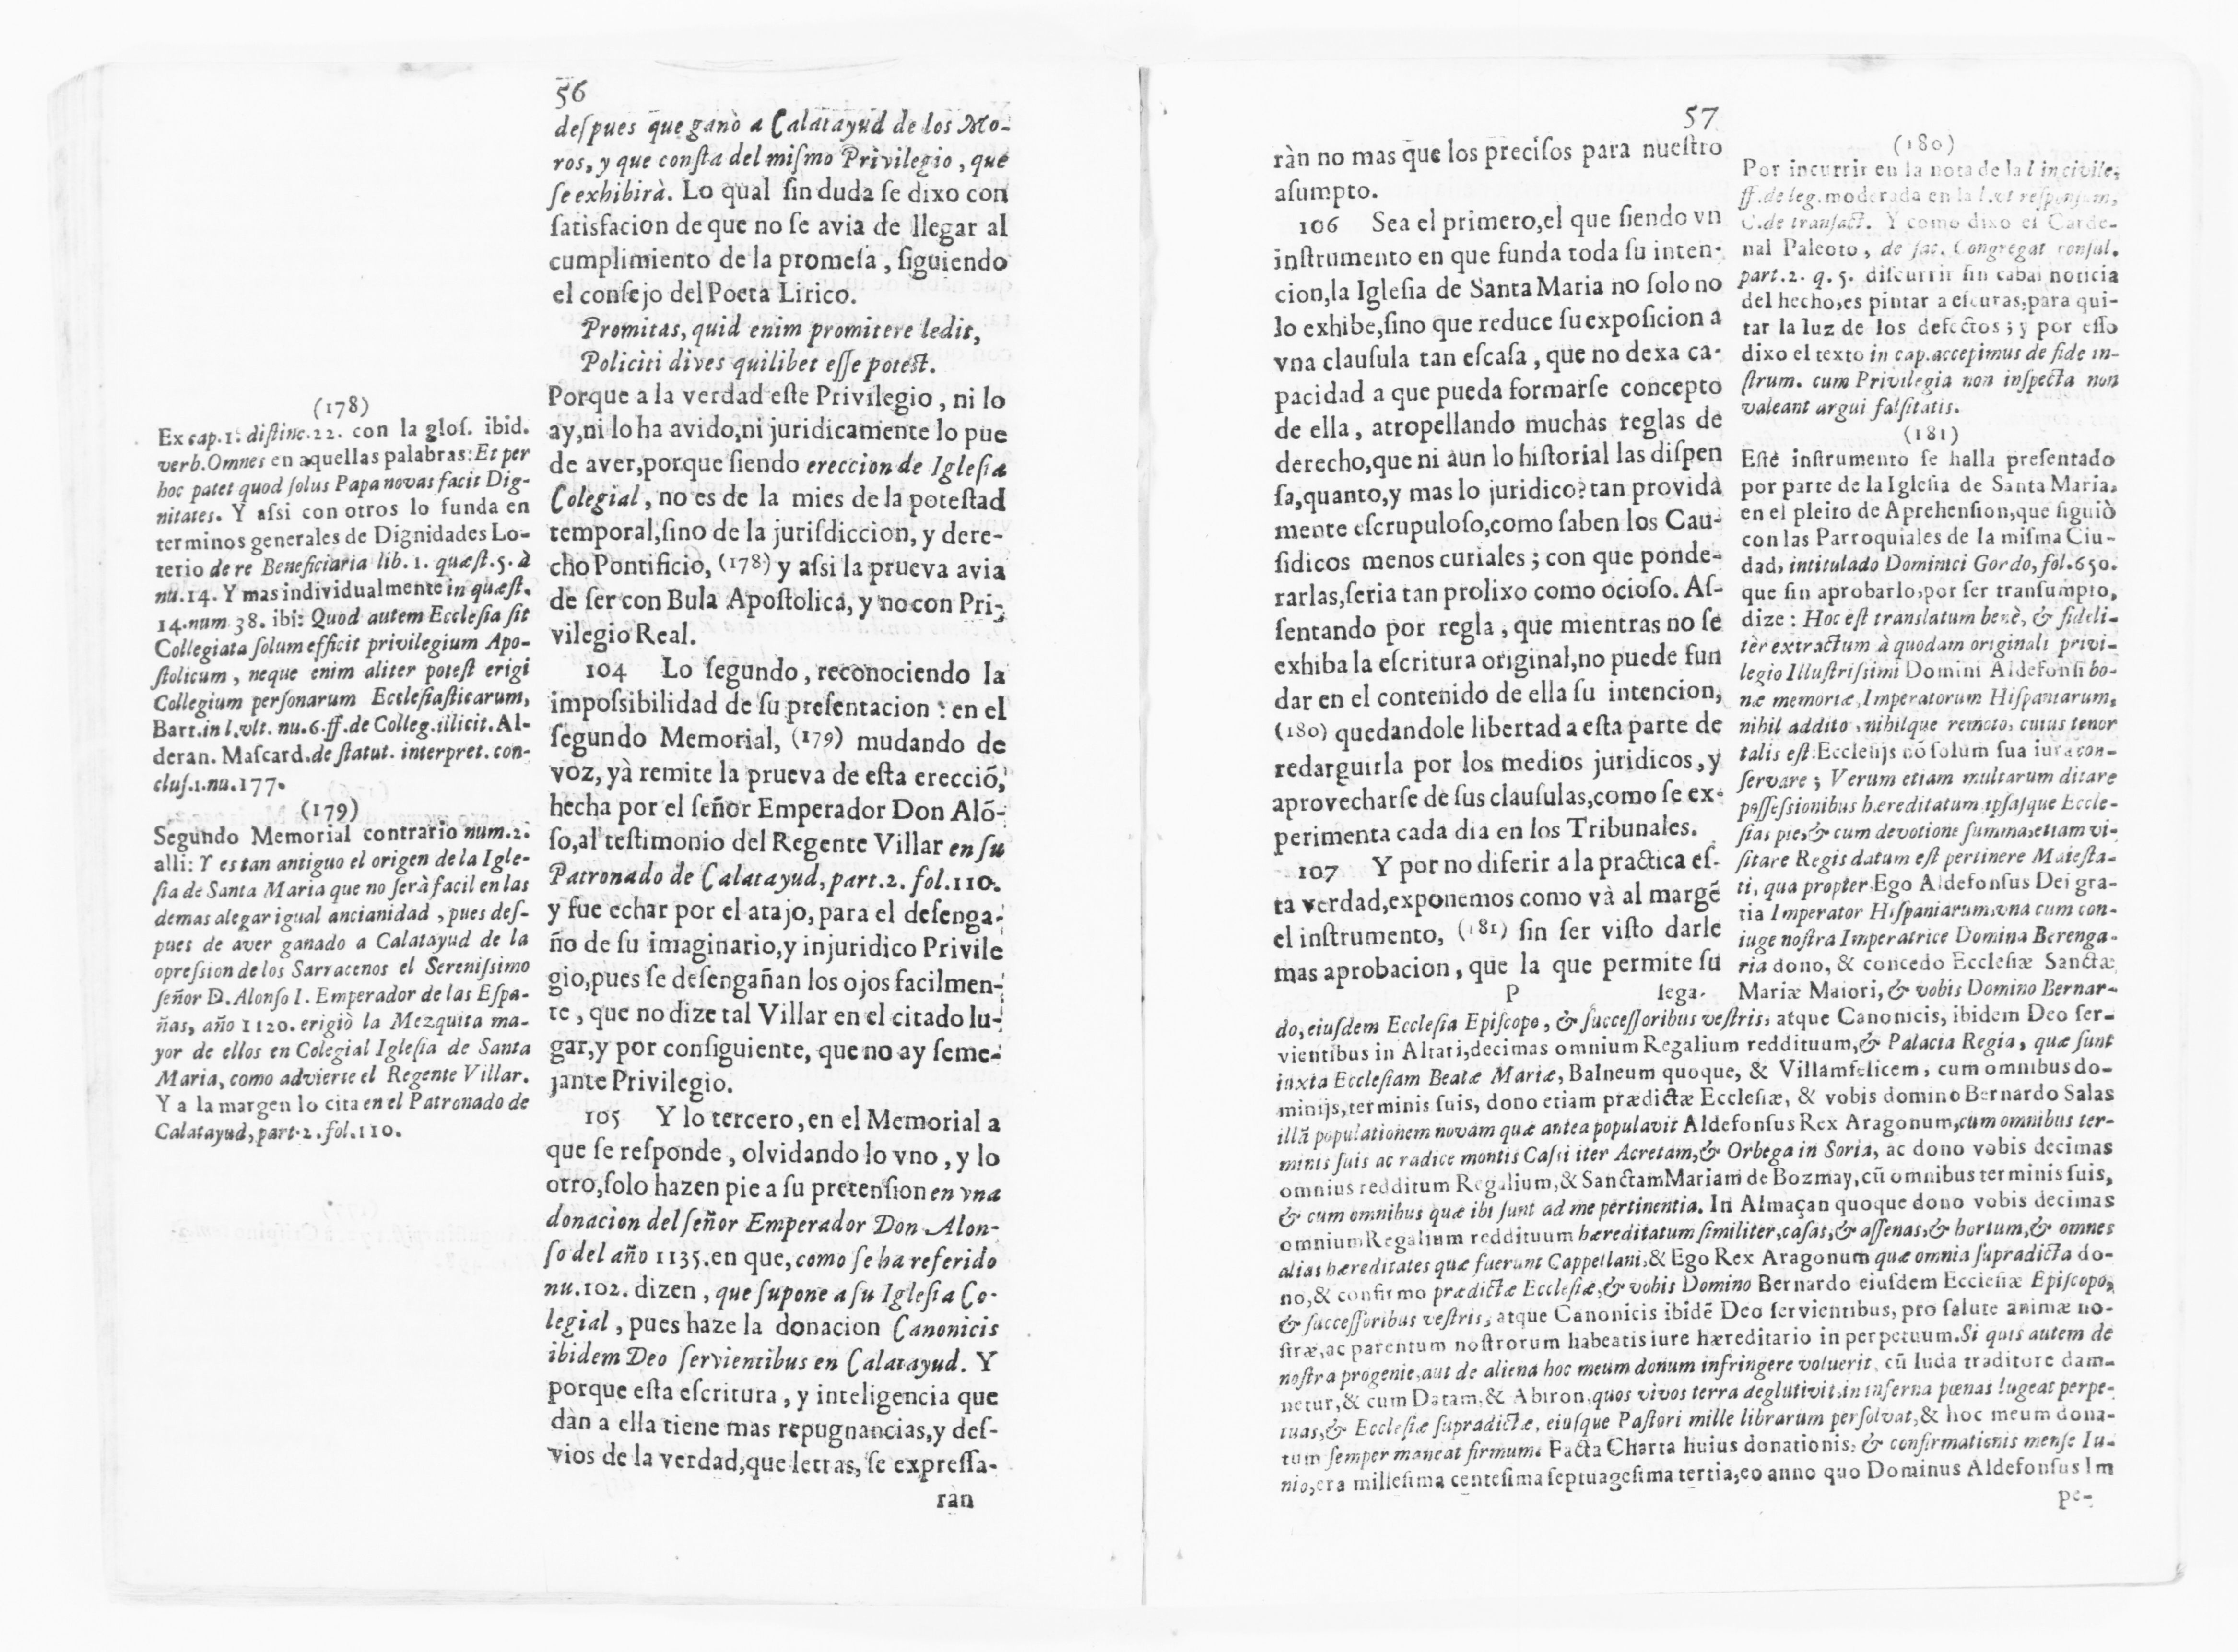 56
deſpues que ganò a Calatayud de los Mo-
ros, y que conſta del miſmo Privilegio, que
ſe exhibirà. Lo qual ſin duda ſe dixo con
ſatisfacion de que no ſe avia de llegar al
cumplimiento de la promeſa, ſiguiendo
el conſejo del Poeta Lirico.
Promitas, quid enim promitere ledit,
Policiti dives quilibet eſſe poteſt.
Porque a la verdad eſte Privilegio, ni lo
ay, ni lo ha avido, ni juridicamente lo pue
de aver, porque ſiendo ereccion de Igleſia
Colegial, no es de la mies de la poteſtad
temporal, ſino de la juriſdiccion, y dere-
cho Pontificio, (178) y aſsi la prueva avia
de ſer con Bula Apoſtolica, y no con Pri-
vilegio Real.
104 Lo ſegundo, reconociendo la
impoſsibilidad de ſu preſentacion: en el
ſegundo Memorial, (179) mudando de
voz, yà remite la prueva de eſta erecciõ,
hecha por el ſeñor Emperador Don Alõ-
ſo, al teſtimonio del Regente Villar en ſu
Patronado de Calatayud, part.2. fol.110.
y fue echar por el atajo, para el deſenga-
ño de ſu imaginario, y injuridico Privile
gio, pues ſe deſengañan los ojos facilmen-
te, que no dize tal Villar en el citado lu-
gar, y por conſiguiente, que no ay ſeme-
jante Privilegio.
105 Y lo tercero, en el Memorial a
que ſe reſponde, olvidando lo vno, y lo
otro, ſolo hazen pie a ſu pretenſion en vna
donacion del ſeñor Emperador Don Alon-
ſo del año 1135. en que, como ſe ha referido
nu.102. dizen, que ſupone a ſu Igleſia Co-
legial, pues haze la donacion Canonicis
ibidem Deo ſervientibus en Calatayud. Y
porque eſta eſcritura, y inteligencia que
dàn a ella tiene mas repugnancias, y deſ-
vios de la verdad, que letras, ſe expreſſa-
ràn
(178)
Ex cap.1. diſtinc.22. con la gloſ. ibid.
verb. Omnes en aquellas palabras: Et per
hoc patet quod ſolus Papa novas facit Dig-
nitates. Y aſsi con otros lo funda en
terminos generales de Dignidades Lo-
terio de re Beneficiaria lib. 1. quæſt.5. à
nu.14. Y mas individualmente in quæſt.
14. num 38. ibi: Quod autem Eccleſia ſit
Collegiata ſolum efficit privilegium Apo-
ſtolicum, neque enim aliter poteſt erigi
Collegium perſonarum Eccleſiaſticarum,
Bart. in l.vlt. nu.6.ff. de Colleg. illicit. Al-
deran. Maſcard. de ſtatut. interpret. con-
cluſ.1.nu.177.
(179)
Segundo Memorial contrario num.2.
alli: Y es tan antiguo el origen de la Igle-
ſia de Santa Maria que no ſerà facil en las
demas alegar igual ancianidad, pues deſ-
pues de aver ganado a Calatayud de la
opreſsion de los Sarracenos el Sereniſsimo
ſeñor D. Alonſo I. Emperador de las Eſpa-
ñas, año 1120. erigiò la Mezquita ma-
yor de ellos en Colegial Igleſia de Santa
Maria, como advierte el Regente Villar.
Y a la margen lo cita en el Patronado de
Calatayud, part.2. fol.110.
57
ràn no mas que los preciſos para nueſtro
aſumpto.
106 Sea el primero, el que ſiendo vn
inſtrumento en que funda toda ſu inten-
cion, la Igleſia de Santa Maria no ſolo no
lo exhibe, ſino que reduce ſu expoſicion a
vna clauſula tan eſcaſa, que no dexa ca-
pacidad a que pueda formarſe concepto
de ella, atropellando muchas reglas de
derecho, que ni aun lo hiſtorial las diſpen
ſa, quanto, y mas lo juridico? tan provida
mente eſcrupuloſo, como ſaben los Cau-
ſidicos menos curiales; con que ponde-
rarlas, ſeria tan prolixo como ocioſo. Aſ-
ſentando por regla, que mientras no ſe
exhiba la eſcritura original, no puede fun
dar en el contenido de ella ſu intencion,
(180) quedandole libertad a eſta parte de
redarguirla por los medios juridicos, y
aprovecharſe de ſus clauſulas, como ſe ex-
perimenta cada dia en los Tribunales.
107 Y por no diferir a la practica eſ-
ta verdad, exponemos como và al margẽ
el inſtrumento, (181) ſin ſer viſto darle
mas aprobacion, que la que permite ſu
P lega-
(180)
Por incurrir en la nota de la l incivile,
ff. de leg. moderada en la l. vt reſponſum,
C. de tranſact. Y como dixo el Carde-
nal Paleoto, de ſac. Congregat conſul.
part.2. q. 5. diſcurrir ſin cabal noticia
del hecho, es pintar a eſcuras, para qui-
tar la luz de los defectos; y por eſſo
dixo el texto in cap. accepimus de fide in-
ſtrum. cum Privilegia non inſpecta non
valeant argui falſitatis.
(181)
Eſte inſtrumento ſe halla preſentado
por parte de la Igleſia de Santa Maria,
en el pleito de Aprehenſion, que ſiguiò
con las Parroquiales de la miſma Ciu-
dad, intitulado Dominici Gordo, fol.650.
que ſin aprobarlo, por ſer tranſumpto,
dize: Hoc eſt translatum benè, & fideli-
tèr extractum à quodam originali privi-
legio Illuſtriſsimi Domini Aldefonſi bo-
næ memoriæ, Imperatorum Hiſpaniarum,
nihil addito, nihilque remoto, cuius tenor
talis eſt: Eccleſijs nõ ſolum ſua iura con-
ſervare; Verum etiam multarum ditare
poſſeſsionibus hæreditatum, ipſaſque Eccle-
ſias pie, & cum devotione ſumma, etiam vi-
ſitare Regis datum eſt pertinere Maieſta-
ti, qua propter Ego Aldefonſus Dei gra-
tia Imperator Hiſpaniarum, vna cum con-
iuge noſtra Imperatrice Domina Berenga-
ria dono, & concedo Eccleſiæ Sanctæ
Mariæ Maiori, & vobis Domino Bernar-
do, eiuſdem Eccleſia Epiſcopo, & ſucceſſoribus veſtris, atque Canonicis, ibidem Deo ſer-
vientibus in Altari, decimas omnium Regalium reddituum, & Palacia Regia, quæ ſunt
iuxta Eccleſiam Beatæ Mariæ, Balneum quoque, & Villamfelicem, cum omnibus do-
minijs, terminis ſuis, dono etiam prædictæ Eccleſiæ, & vobis domino Bernardo Salas
illã populationem novam quæ antea populavit Aldefonſus Rex Aragonum, cum omnibus ter-
minis ſuis ac radice montis Caſsi iter Acretam, & Orbega in Soria, ac dono vobis decimas
omnius redditum Regalium, & Sanctam Mariam de Bozmay, cũ omnibus terminis ſuis,
& cum omnibus quæ ibi ſunt ad me pertinentia. In Almaçan quoque dono vobis decimas
omnium Regalium reddituum hæreditatum ſimiliter, caſas, & aſſenas, & hortum, & omnes
alias hæreditates quæ fuerunt Cappellani, & Ego Rex Aragonum quæ omnia ſupradicta do-
no, & confirmo prædictæ Eccleſiæ, & vobis Domino Bernardo eiuſdem Eccleſiæ Epiſcopo,
& ſucceſſoribus veſtris, atque Canonicis ibidẽ Deo ſervientibus, pro ſalute animæ no-
ſtræ, ac parentum noſtrorum habeatis iure hæreditario in perpetuum. Si quis autem de
noſtra progenie, aut de aliena hoc meum donum infringere voluerit, cũ Iuda traditore dam-
netur, & cum Datam, & Abiron, quos vivos terra deglutivit, in inferna pœnas lugeat perpe-
tuas, & Eccleſiæ ſupradictæ, eiuſque Paſtori mille librarum perſolvat, & hoc meum dona-
tum ſemper maneat firmum. Facta Charta huius donationis, & confirmationis menſe Iu-
nio, era milleſima centeſima ſeptuageſima tertia, eo anno quo Dominus Aldefonſus Im
pe-